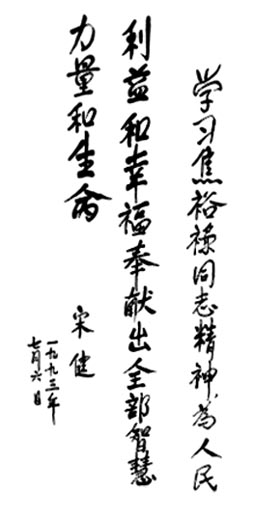 学习焦裕禄同志精神为人民
利益和幸福奉献出全部智慧
力量和生命
宋健
一九九三年
七月六日